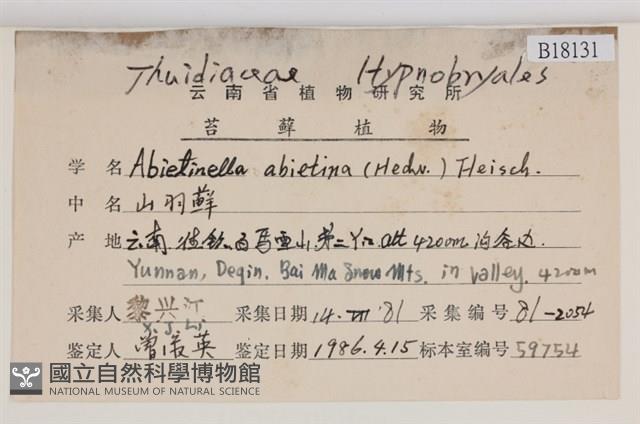 B18131
Thuidiaceae Hypnobryales
云南省植物研究所
苔藓植物
学名 Abietinella abietina (Hedw.) Fleisch.
中名 山羽藓
产地 云南 德钦 白马雪山 第二 alt 4200m 沟谷边.
Yunnan, Deqin. Bai Ma Snow Mts. in valley. 4200m
采集人 黎兴江 采集日期 14-VIII '81 采集编号 81-2054
X. J. Li
鉴定人 曾淑英 鉴定日期 1986.4.15 标本室编号 59754
國立自然科學博物館
NATIONAL MUSEUM OF NATURAL SCIENCE